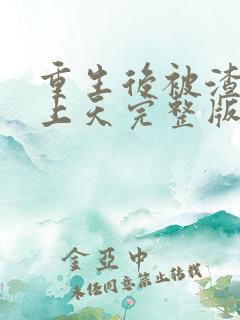 重生後被渣
上天完整版
金亞中
未經同意禁止轉載